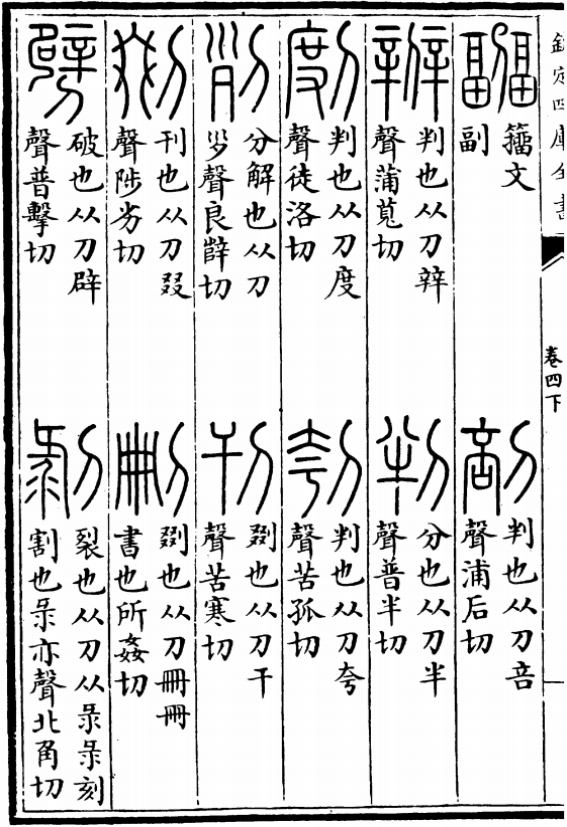 欽定四庫全書
卷四下
𠠦
籒文
副
剖
判也从刀咅
聲浦后切
辨
判也从刀辡
聲蒲莧切
判
分也从刀半
聲普半切
剫
判也从刀度
聲徒洛切
刳
判也从刀夸
聲苦孤切
列
分解也从刀
𡿪聲良薛切
刊
剟也从刀干
聲苦寒切
剟
刊也从刀叕
聲陟劣切
刪
剟也从刀冊冊
書也所姦切
劈
破也从刀辟
聲普擊切
剝
裂也从刀从彔彔刻
割也彔亦聲北角切